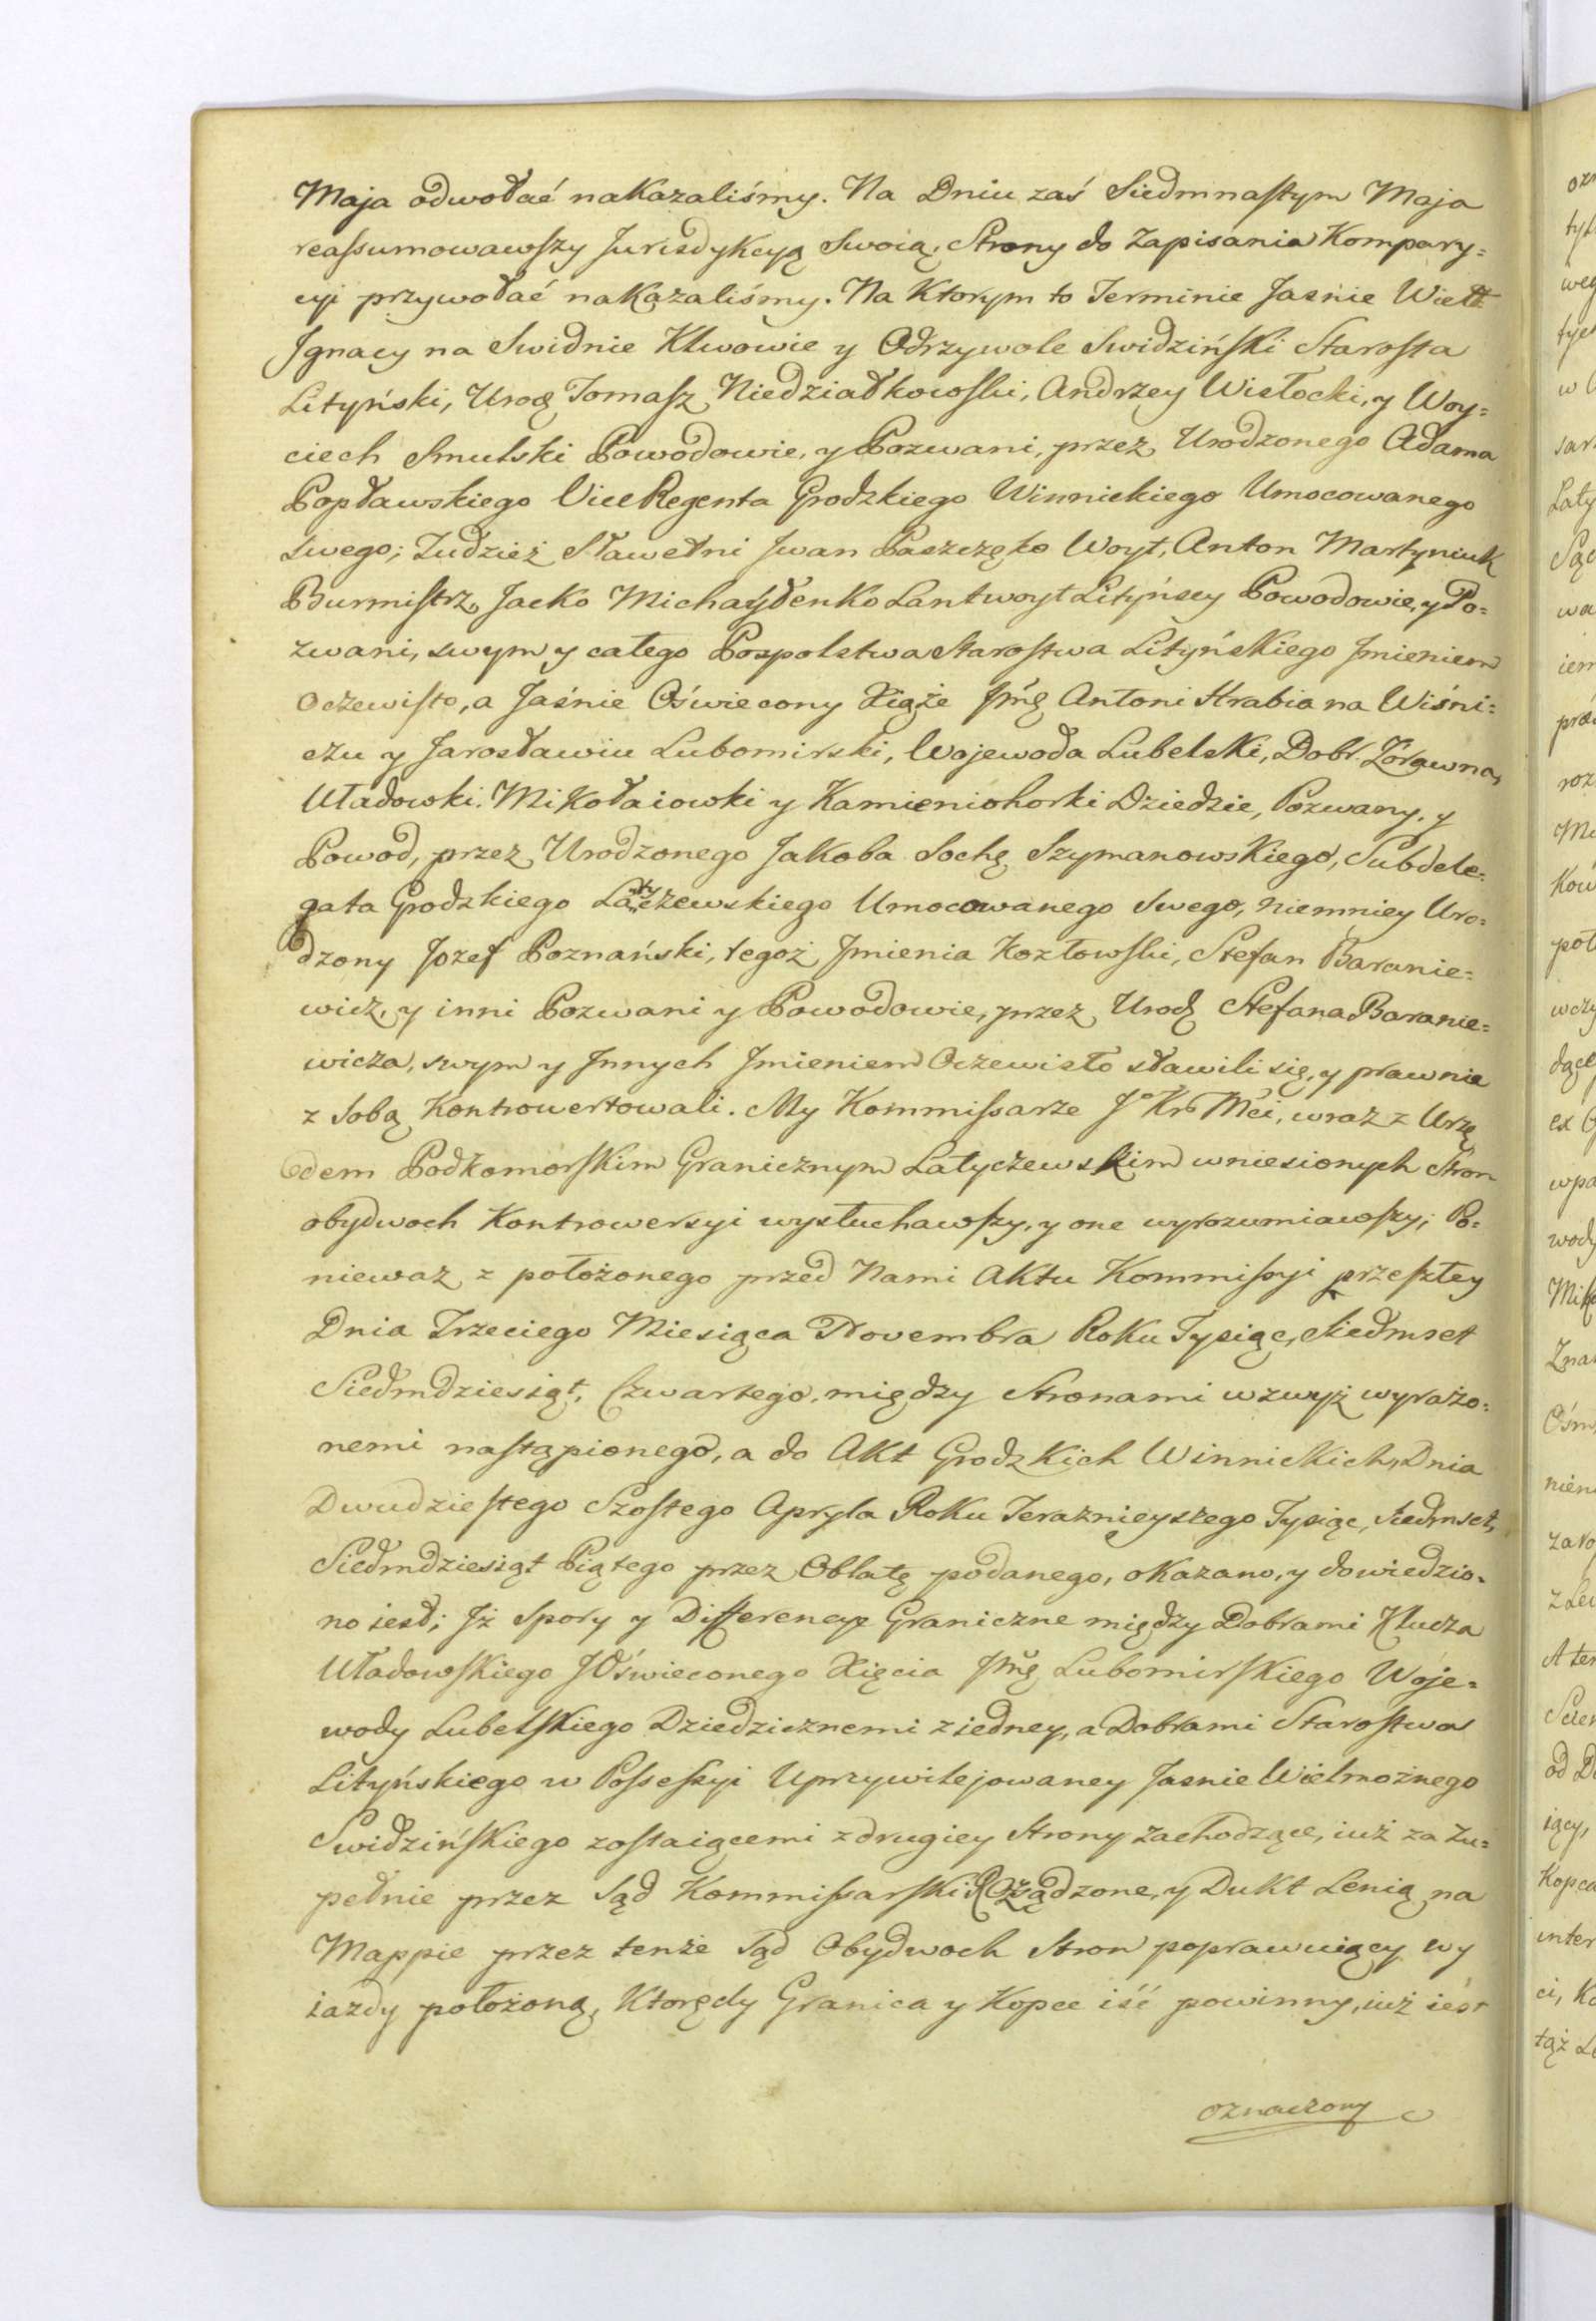 Maja odwołać nakazaliśmy. Na Dniu zaś Siedmnastym Maja
reassumowawszy Jurisdykcyą Swoią, Strony do Zapisania Kompary=
cyi przywołać nakazaliśmy. Na Ktorym to Terminie Jaśnie Wiel
Jgnacy na Swidnie Klwowie y Odrzywole Swidziński Starosta
Lityński, Urodz Tomasz Niedziałkowski, Andrzey Wisłocki, y Woy=
ciech Smulski Powodowie, y Pozwani, przez Urodzonego Adama
Popławskiego Vice Regenta Grodzkiego Winnickiego Umocowanego
Swego; Tudzież Sławetni Jwan Paszczęko Woyt, Anton Martyniuk
Burmistrz, Jacko Michayłenko Lantwoyt Lityńscy Powodowie, y Po=
zwani, swym y całego Pospolstwa Starostwa Lityńskiego Jmieniem
Oczewisto, a Jaśnie Oświecony Xiąże Jmć Antoni Hrabia na Wiśni=
czu y Jarosławiu Lubomirski, Wojewoda Lubelski, Dobr Żórawna,
Uładowki, Mikołaiowki y Kamieniohorki Dziedzic, Pozwany, y
Powod, przez Urodzonego Jakoba Sochę Szymanowskiego, Subdele=
gata Grodzkiego Latyczewskiego Umocowanego Swego, niemniey Uro=
dzony Jozef Poznański, tegoż Jmienia Kozłowski, Stefan Baranie=
wicz, y inni Pozwani y Powodowie, przez Urodz Stefana Baranie=
wicza, swym y Jnnych Jmieniem Oczewisto stawili się, y prawnie
z Sobą Kontrowertowali. My Kommissarze Jo Kr Mci, wraz z Urzę
dem Podkomorskim Granicznym Latyczewskim wniesionych Stron
obydwoch Kontrowersyi wysłuchawszy, y one wyrozumiawszy; Po=
nieważ z położonego przed Nami Aktu Kommissyi przeszłey
Dnia Trzeciego Miesiąca Novembra Roku Tysiąc, Siedmset
Siedmdziesiąt, Czwartego, między Stronami wzwyż wyrażo=
nemi nastąpionego, a do Akt Grodzkich Winnickich, Dnia
Dwudziestego Szostego Apryla Roku Teraznieyszego Tysiąc, Siedmset,
Siedmdziesiąt Piątego przez Oblatę podanego, okazano, y dowiedzio=
no iest; Jż Spory y Differencye Graniczne między Dobrami Klucza
Uładowskiego JOświeconego Xięcia Jmć Lubomirskiego Woje=
wody Lubelskiego Dziedzicznemi z iedney, a Dobrami Starostwa
Lityńskiego w Possessyi Uprzywilejowaney Jasnie Wielmożnego
Swidzińskiego zostaiącemi z drugiey Strony Zachodzące, iuż za Zu=
pełnie przez Sąd Kommissarski Rozsądzone, y Dukt Lenią na
Mappie przez tenże Sąd Obydwoch Stron poprawuiący wy
iazdy położoną, Ktorędy Granica y Kopce iść powinny, iuż iest
oznaczony